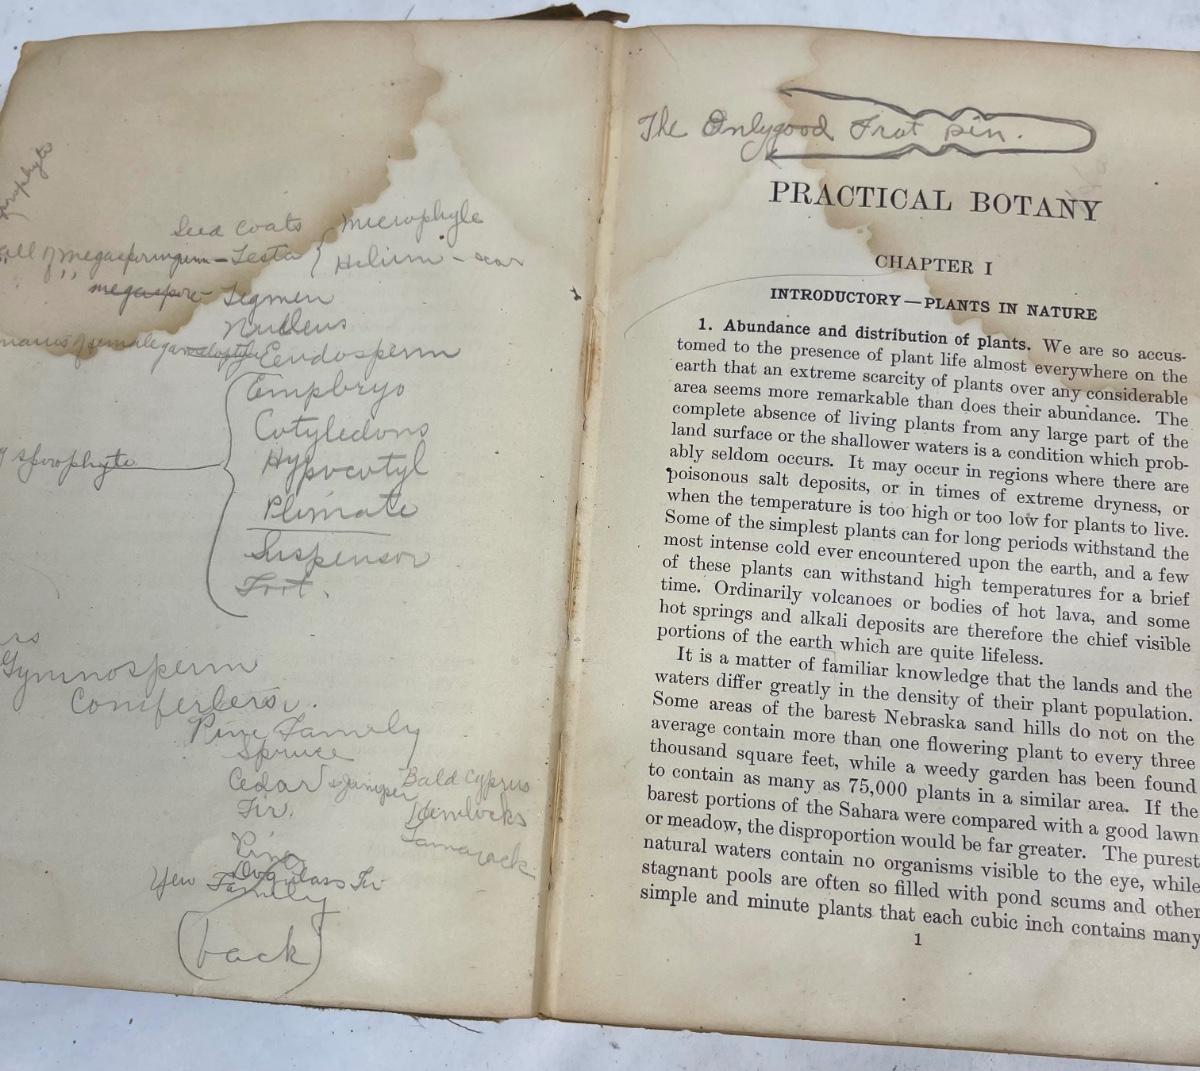 Seed coats
Microphyle
megasporangium - Testa
Helium - scar
megaspore - Tegmen
Nucleus
Eendosperm
Empbryo
Cotyledons
Hypocotyl
sporophyte
Plimate
Suspensor
Gymnosperm
Pine Family
Spruce
Cedar & Juniper
Bald Cyprus
Fir.
Hemlocks
Pine
Tamarack
Douglass Fir
Yew Family
(back)
The Only good Frat pin.
PRACTICAL BOTANY
CHAPTER I
INTRODUCTORY—PLANTS IN NATURE
1. Abundance and distribution of plants. We are so accus-
tomed to the presence of plant life almost everywhere on the
earth that an extreme scarcity of plants over any considerable
area seems more remarkable than does their abundance. The
complete absence of living plants from any large part of the
land surface or the shallower waters is a condition which prob-
ably seldom occurs. It may occur in regions where there are
poisonous salt deposits, or in times of extreme dryness, or
when the temperature is too high or too low for plants to live.
Some of the simplest plants can for long periods withstand the
most intense cold ever encountered upon the earth, and a few
of these plants can withstand high temperatures for a brief
time. Ordinarily volcanoes or bodies of hot lava, and some
hot springs and alkali deposits are therefore the chief visible
portions of the earth which are quite lifeless.
It is a matter of familiar knowledge that the lands and the
waters differ greatly in the density of their plant population.
Some areas of the barest Nebraska sand hills do not on the
average contain more than one flowering plant to every three
thousand square feet, while a weedy garden has been found
to contain as many as 75,000 plants in a similar area. If the
barest portions of the Sahara were compared with a good lawn
or meadow, the disproportion would be far greater. The purest
natural waters contain no organisms visible to the eye, while
stagnant pools are often so filled with pond scums and other
simple and minute plants that each cubic inch contains many
1